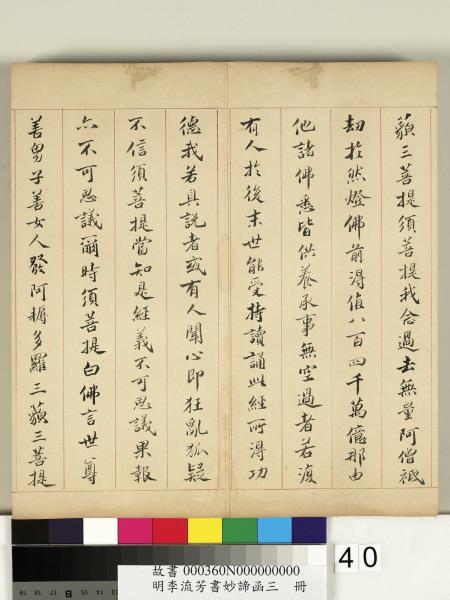 藐三菩提須菩提我念過去無量阿僧祇
劫於然燈佛前得值八百四千萬億那由
他諸佛悉皆供養承事無空過者若復
有人於後末世能受持讀誦此經所得功
德我若具說者或有人聞心即狂亂狐疑
不信須菩提當知是經義不可思議果報
亦不可思議爾時須菩提白佛言世尊
善男子善女人發阿耨多羅三藐三菩提
40
故書 000360N000000000
明李流芳書妙諦函三 冊